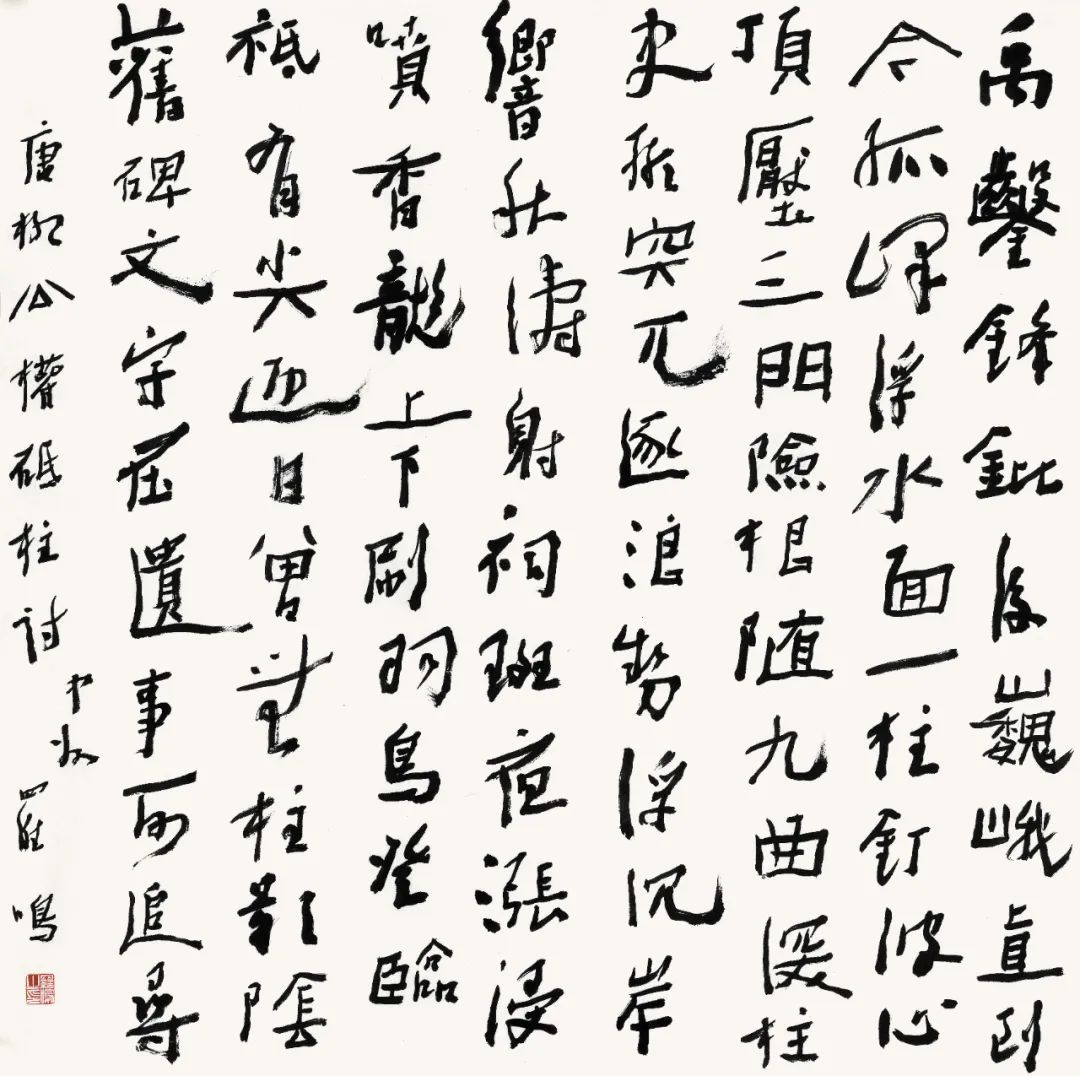 禹鑿鋒鈚後巍峨直到
今孤峰浮水面一柱釘波心
頂壓三門險根随九曲深柱
形突兀逐浪勢浮沉岸
響秋濤射祠斑夜漲浸
噴香龍上下刷羽鳥登臨
祗有尖迎日曾無柱影陰
舊碑文字在遺事可追尋
唐柳公權砥柱詩 中州 羅鳴